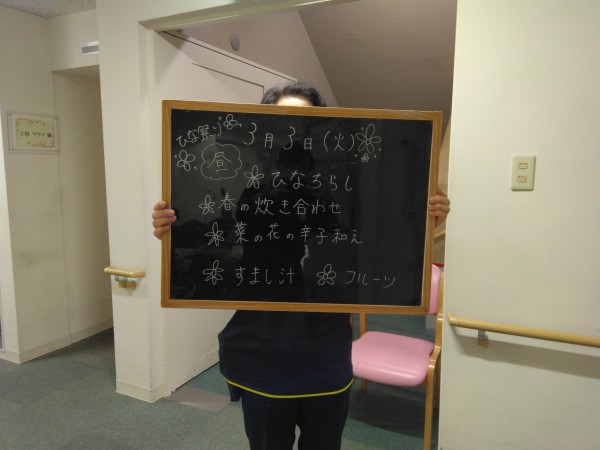 ひな祭り 3月3日(火)
昼
ひなちらし
春の炊き合わせ
菜の花の辛子和え
すまし汁 フルーツ